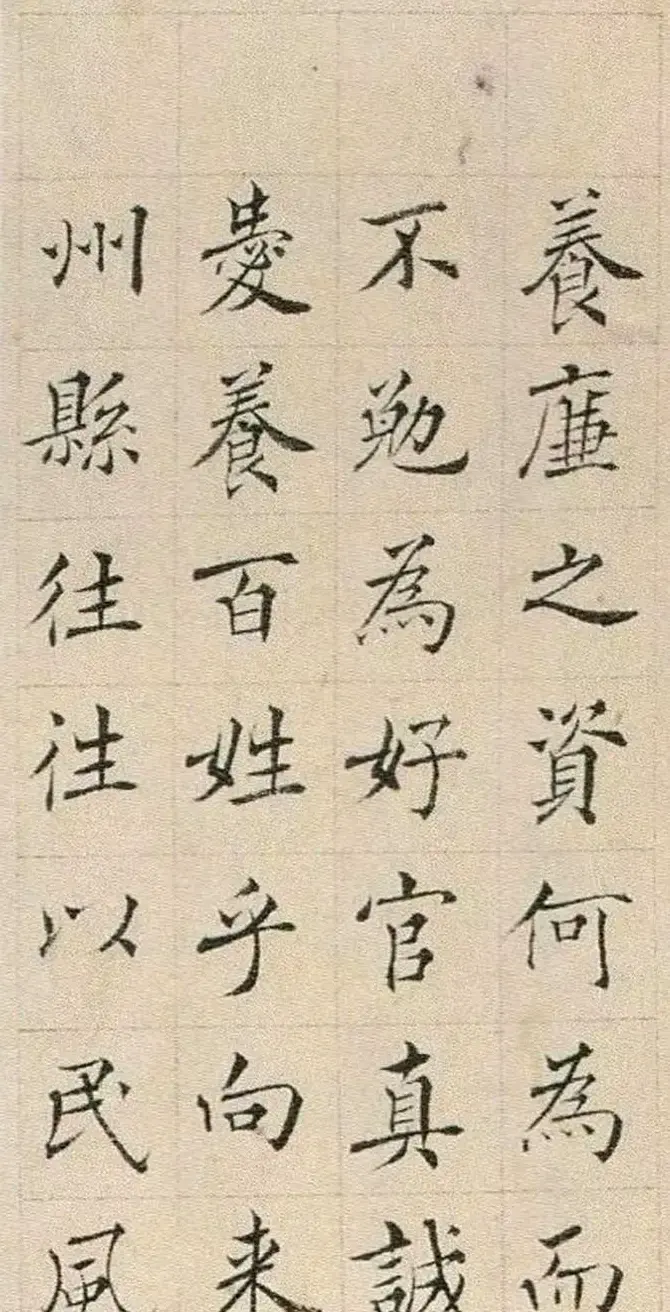 養廉之資何為而
不勉為好官真誠
愛養百姓乎向来
州縣往往以民風